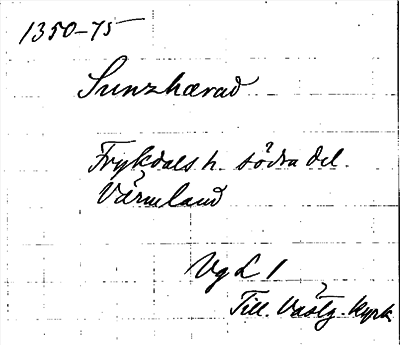 1350-75
Sunzhærad
Frykdals h. södra del.
Värmland
Vg L 1
Till. Västg. kyrk